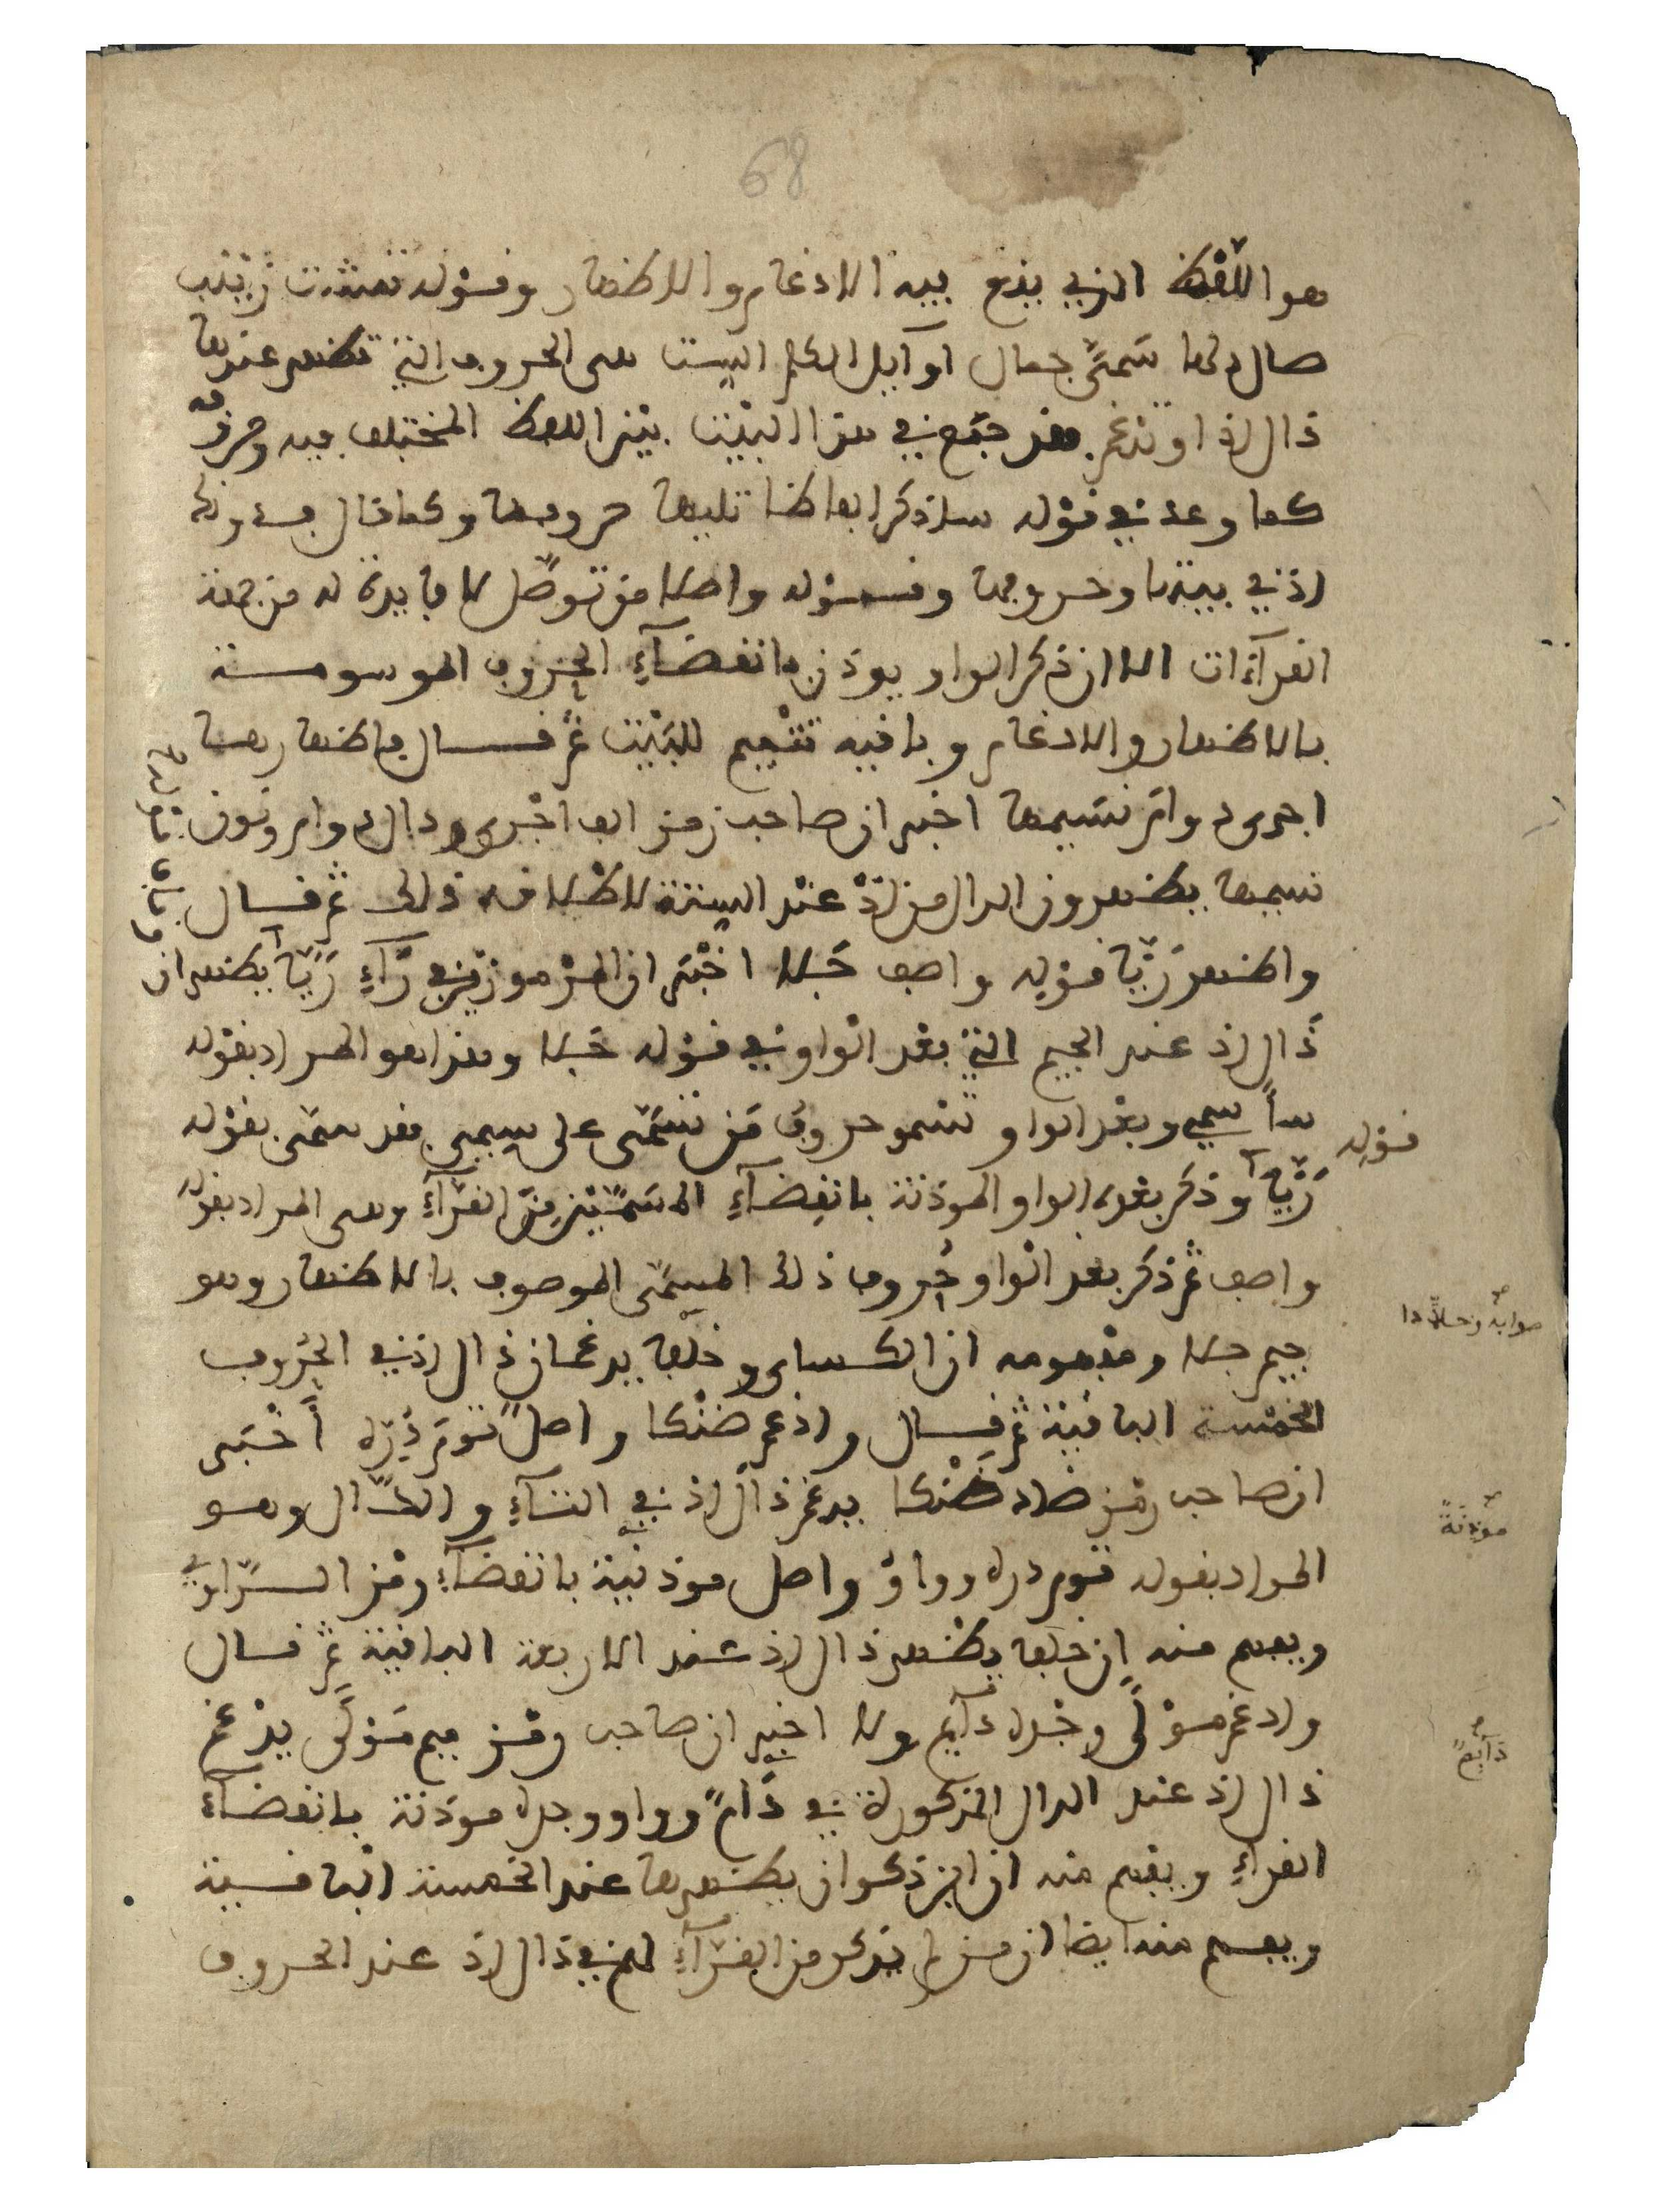 68
هو اللّفظ الذي يقع فيه الادغام والاظهار وقوله تمشت زينب
صال دلها سَمِيَّ جمال اوآيل الكلم الست هى الحروف التي تظهر عندها
ذال اذ او تدغم فقد جمع في هذا البيت بين اللفظ المختلف فيه وحروفه
كما وعد في قوله ساذكر الفاظا تليها حروفها وكما قال فدونك
اذ في بيتها وحروفها وقوله واصلا من توصّل لا فايدة له من جهة
القرآءات الا ان ذكر الواو يوذن بانقضآءِ الحروف الموسومة
بالاظهار والادغام وباقيه تتميم للبيت ثم قال فاظهارها
اجرى دوام نسيمها اخبر ان صاحب رمز الف اجرى ودال دوام ونون
نسيمها يظهرون الذال من اذْ عند الستة للاطلاقه ذلك ثم قال
واظهر رَيّا قوله واصف جَلا اخبر ان المرموز في رآءِ رَيّا يظهران
ذَال اذ عند الجيم التي بعد الواو في قوله جَلا وهذا هو المراد بقوله
سأسمي وبعد الواو تسمو حروف مَن تسَمّى على سيمى فقد سمّى بقوله
قوله
رَيّا وذكر بعده الواو الموذنة بانقضآءِ المسَمَّيَيْن من القرآءِ وهى المراد بقوله
واصف ثم ذكر بعد الواو حروف ذلك المسمّى الموصوف بالاظهار وهو
جيم جلا ومفهومه ان الكساى وخلفا يدغمان ذال اذ في الحروف
صوابه وخلادا
الخمسة الباقية ثم قال وادغم ضنْكا واصلٌ تومَ دُرّه أخبر
ان صاحب رمز ضاد ضنْكا يدغم ذال اذ في التآءِ والدّال وهو
موذنةً
المراد بقوله توم دره وواوُ واصل موذنية بانقضآء رمز الرّاوي
ويفهم منه ان خلفا يظهر ذال اذ عند الاربعة الباقية ثم قال
وادغم موْلًى وجْده دآيم ولا اخبر ان صاحب رمز ميم مَوْلًى يدغم
دآيمٌ
ذال اذ عند الدال المذكورة في دَامٌ وواو وجده موذنة بانقضآء
القرآءِ ويفهم منه ان ابن ذكوان يظهرها عند الخمسة الباقية
ويفهم منه ايضا ان من لم يذكر من القرآءِ لهم في ذال اذ عند الحروف